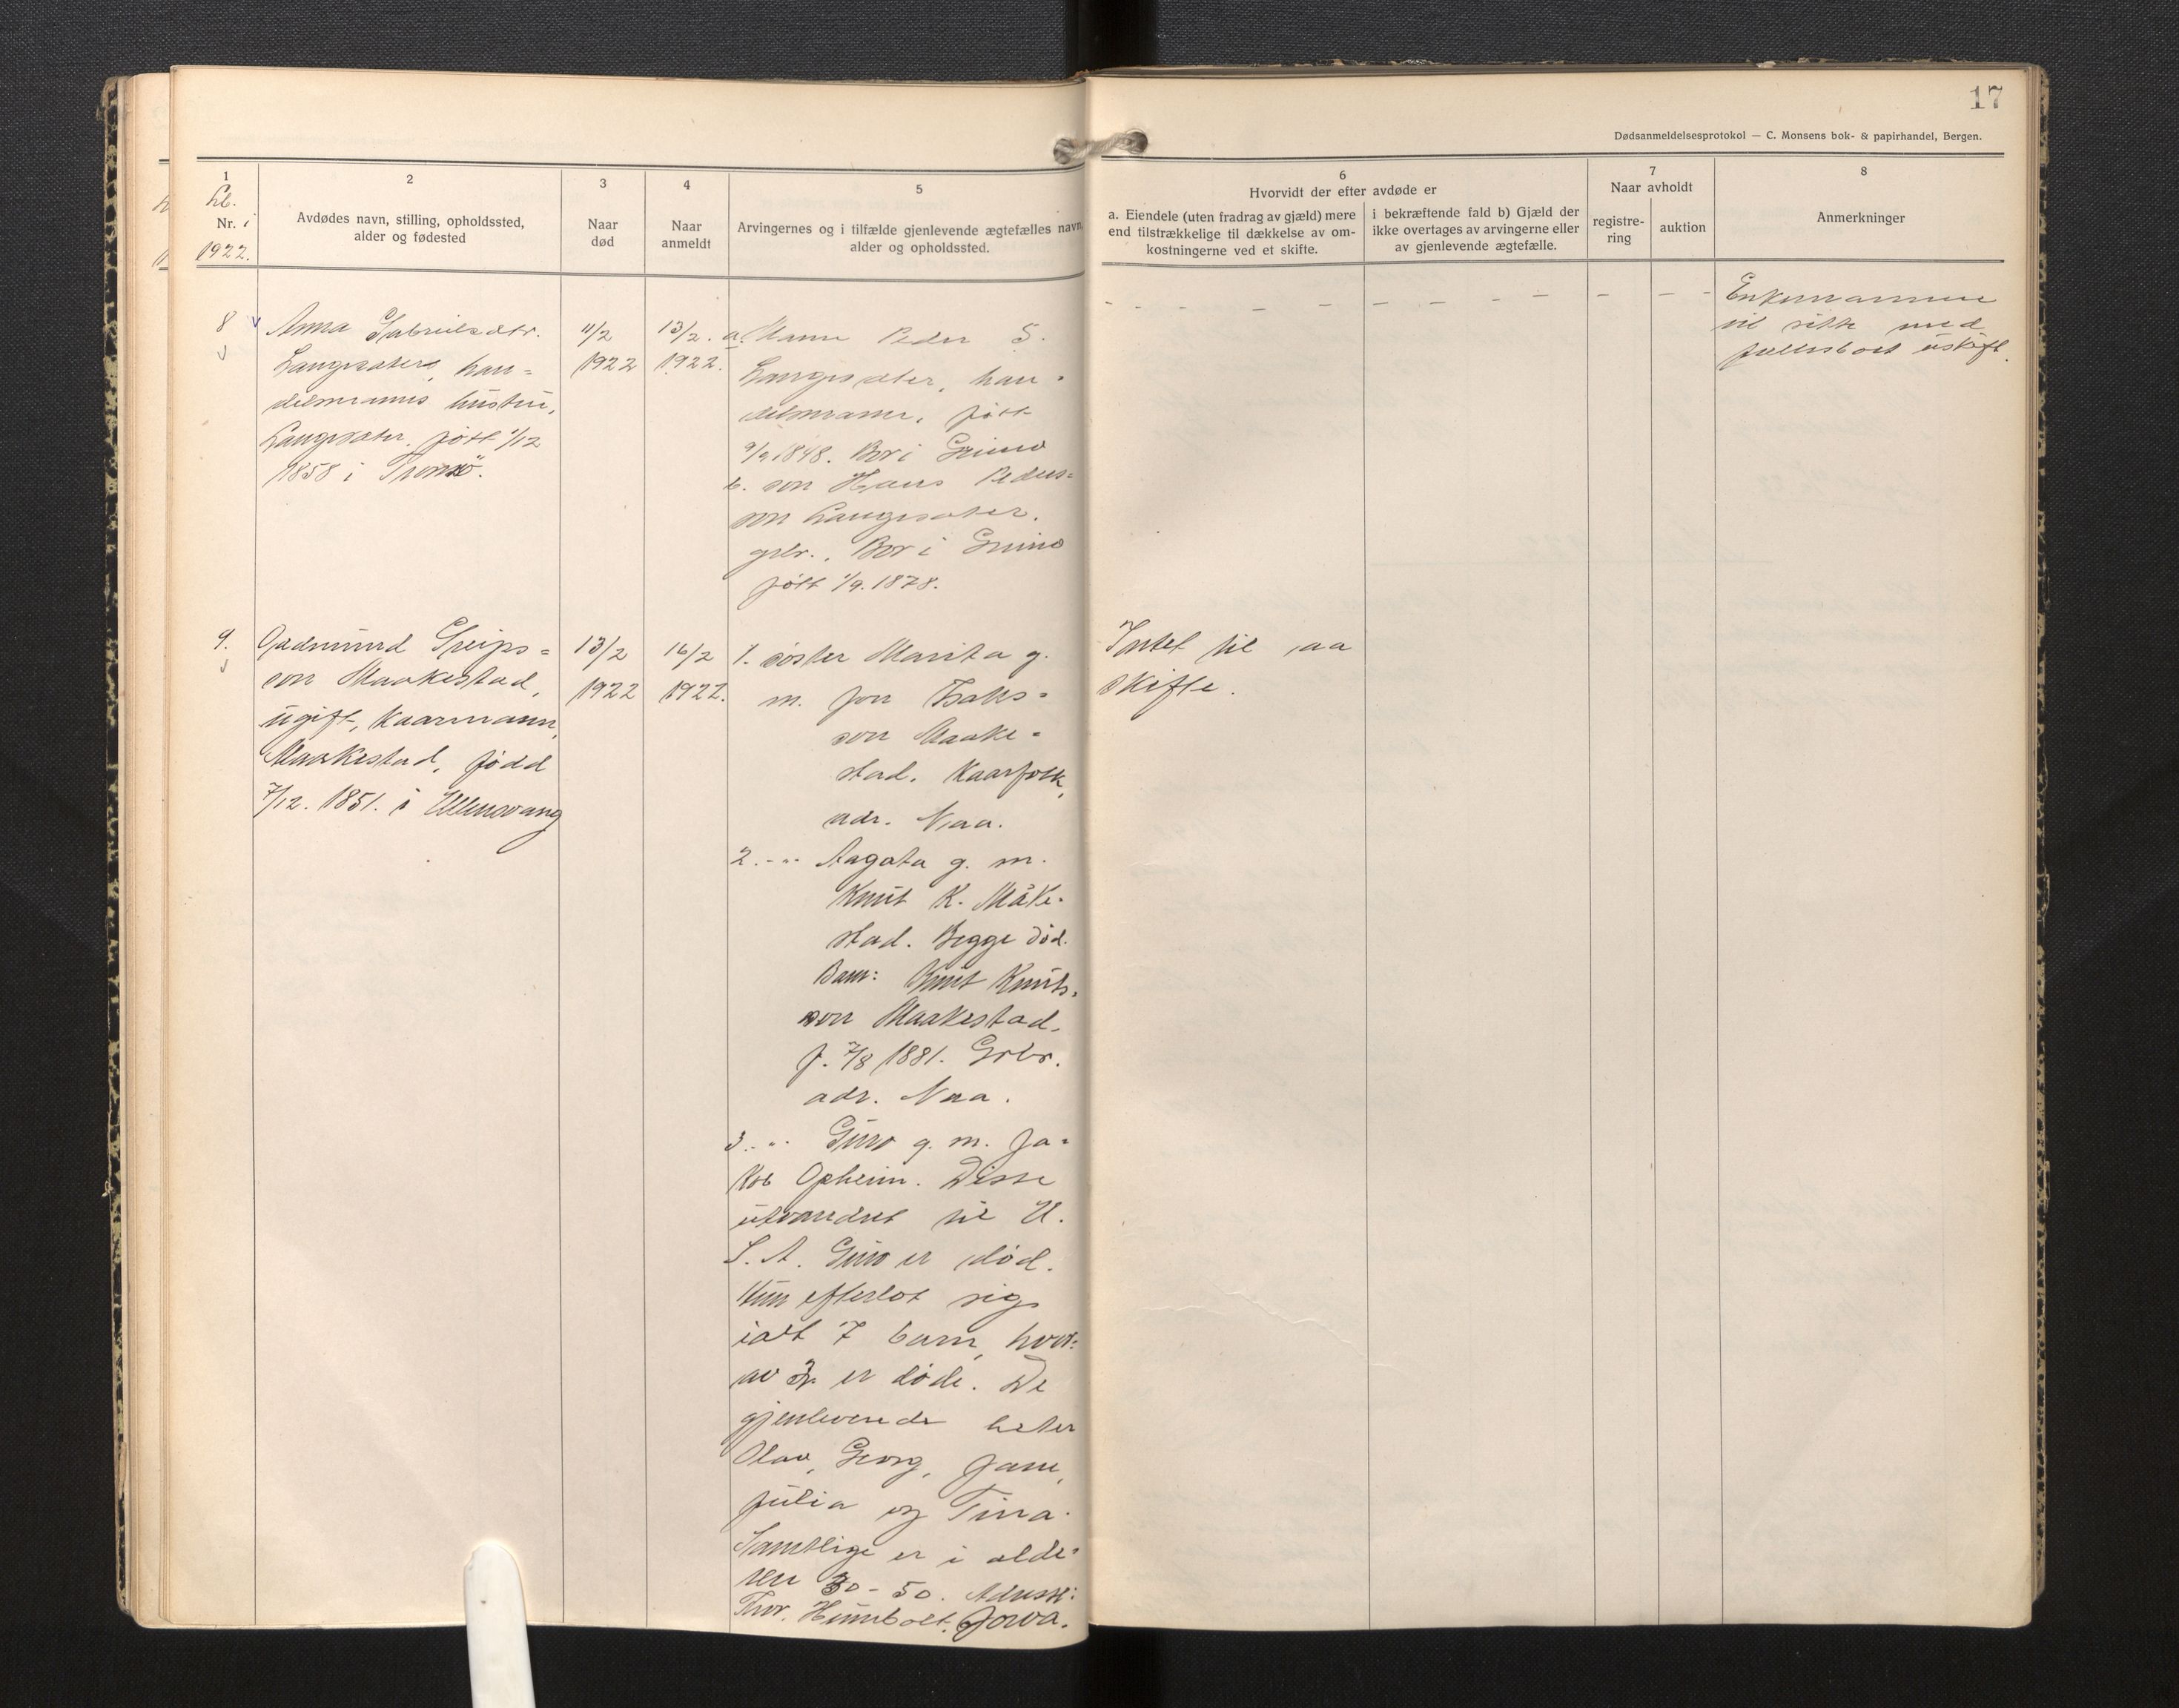 17
Dødsanmeldelsesprotokol — C. Monsens bok- & papirhandel, Bergen.
1
Lb.
Nr. i
1922.
2
Avdødes navn, stilling, opholdssted,
alder og fødested
3
Naar
død
4
Naar
anmeldt
5
Arvingernes og i tilfælde gjenlevende ægtefælles navn,
alder og opholdssted.
6
Hvorvidt der efter avdøde er
a. Eiendele (uten fradrag av gjæld) mere
end tilstrækkelige til dækkelse av om-
kostningerne ved et skifte.
i bekræftende fald b) Gjæld der
ikke overtages av arvingerne eller
av gjenlevende ægtefælle.
7
Naar avholdt
registre-
ring
auktion
8
Anmerkninger
8
Anna Gabrielsdtr.
Langesæter, han=
delsmanns hustru,
Langesæter. født 1/12
1858 i Tromsö.
11/2
1922
13/2.
1922.
a Mann Peder S.
Langesæter, han=
delsmann, født
9/9 1848. Bor i Grimo
b. søn Hans Peders=
søn Langesæter.
grbr., Bor i Grimo
født 1/9. 1878.
Enkemannen
vil sitte med
fællesboet uskift.
9.
Oddmund Greips=
son Maakestad,
ugift, Kaarmann,
Maakestad, född
7/12. 1851. i Ullensvang
13/2
1922
16/2
1922.
1. søster Marita g.
m. Jon Isaks=
son Maake=
stad. Kaarfolk,
adr. Naa.
2. -"- Aagata g. m.
Knut K. Måke-
stad. Begge död.
Barn: Knut Knuts-
son Maakestad.
f. 7/8 1881. Grbr.
adr. Naa.
3. -"- Guro g. m. Ja=
kob Opheim. Disse
utvandret til U.
S. A. Guro er død.
Hun efterlot sig
ialt 7 barn, hvor=
av 2 er døde. De
gjenlevende heter
Olav, Georg, Jane,
Julia og Tina.
Samtlige er i alde=
ren 30 - 50. Adresse:
Thor. Humbolt. Jowa.
Intet til aa
skifte.